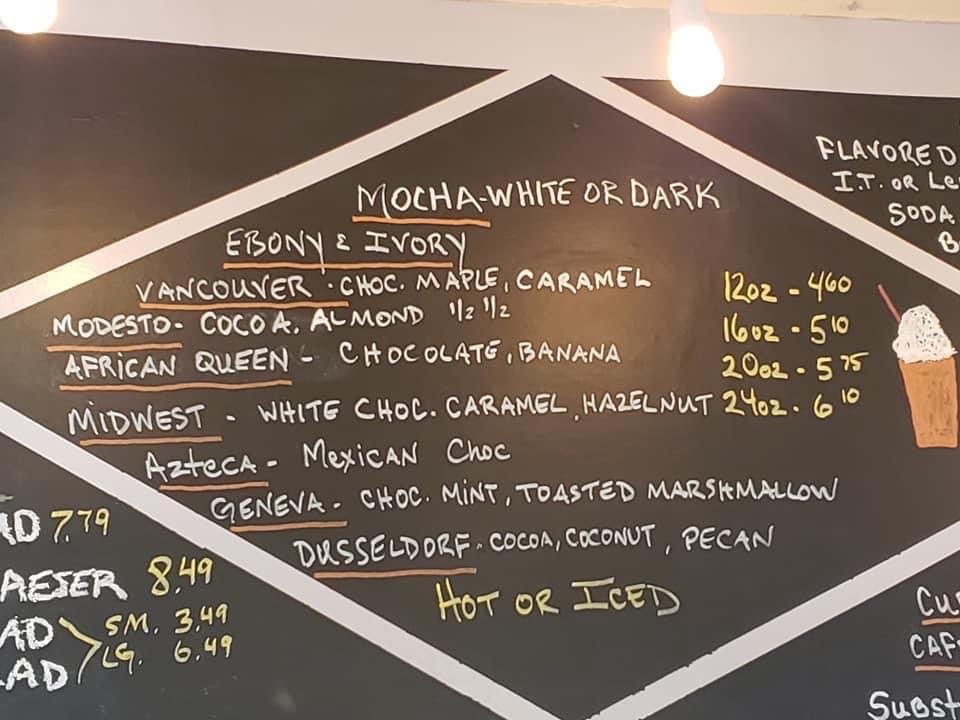 MOCHA-WHITE OR DARK
EBONY & IVORY
VANCOUVER · CHOC. MAPLE, CARAMEL
MODESTO- COCOA, ALMOND 1/2 1/2
AFRICAN QUEEN - CHOCOLATE, BANANA
MIDWEST - WHITE CHOC. CARAMEL, HAZELNUT
AZTECA - MEXICAN CHOC
GENEVA - CHOC. MINT, TOASTED MARSHMALLOW
DUSSELDORF - COCOA, COCONUT, PECAN
HOT OR ICED
12oz - 460
16oz - 510
20oz - 575
24oz - 610
FLAVORED
I.T. OR
SODA
7.79
8.49
SM. 3.49
LG. 6.49